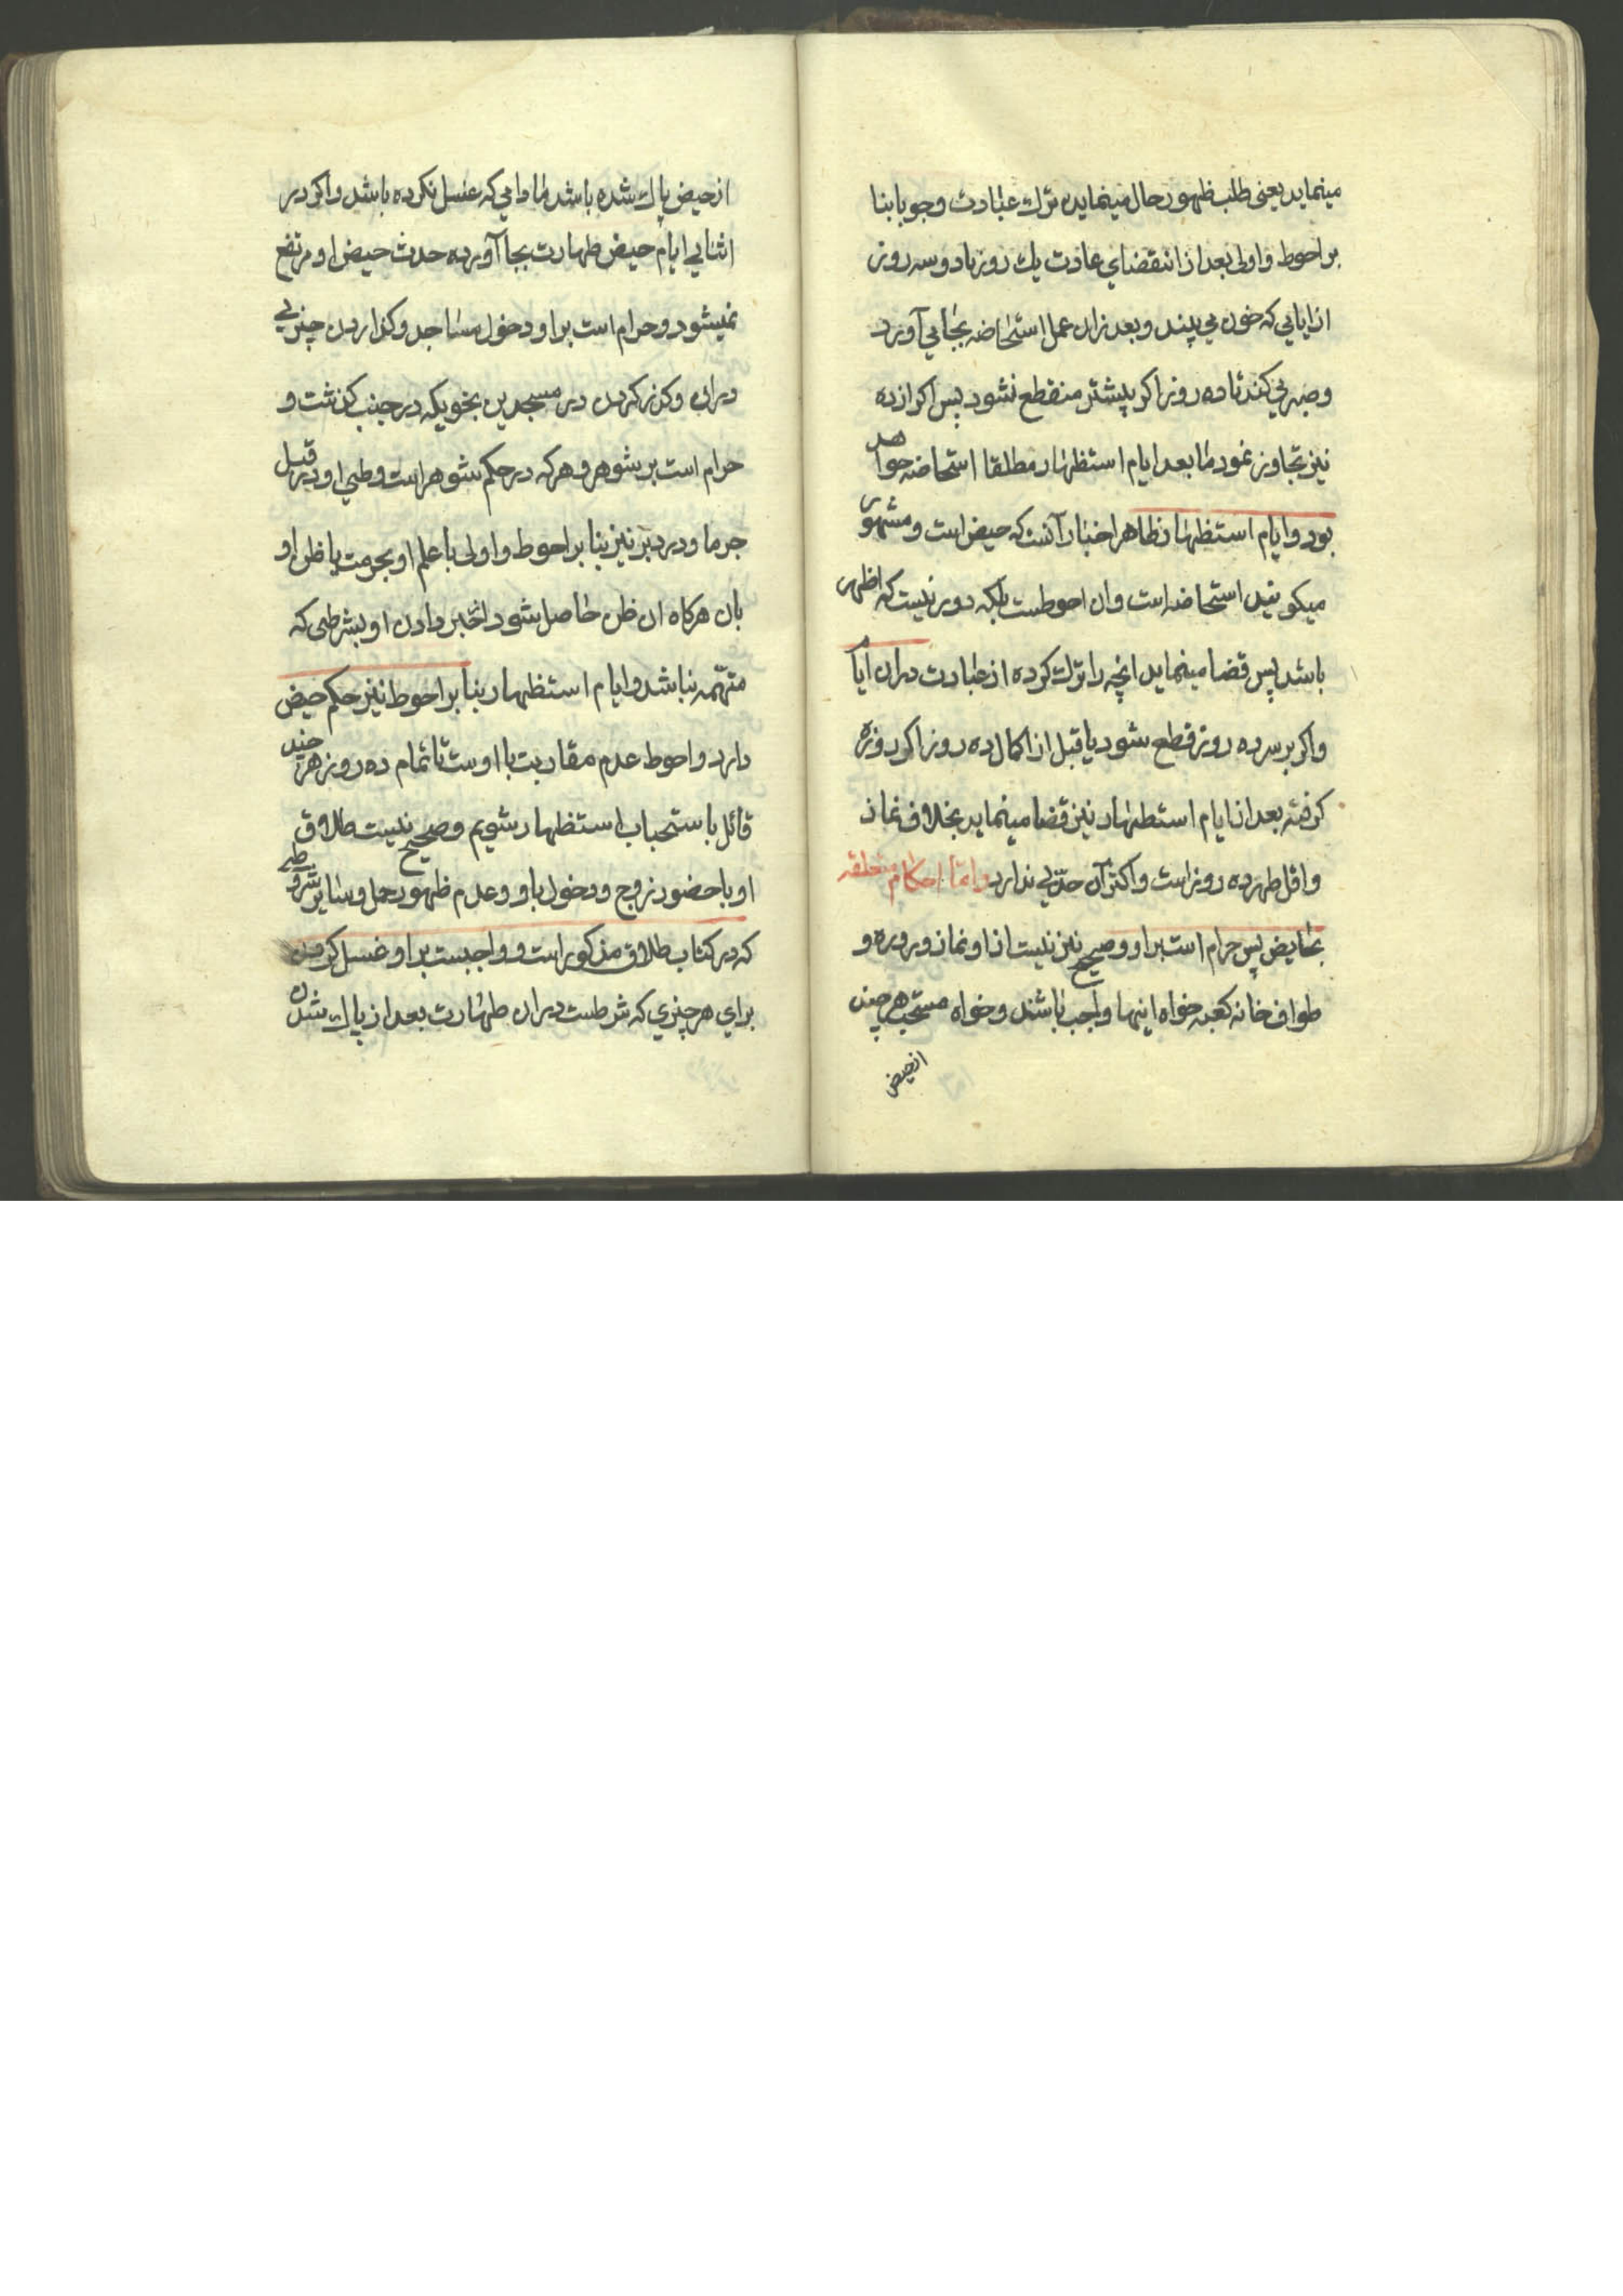 مینماید یعنی طلب ظهور حال مینماید بترك عبادت وجوبا بنا
بر احوط و اولی بعد از انقضای عادت یك روز یا دو سه روز
از ایامی که خون می بیند و بعد از ان عمل استحاضه بجا می آورد
و صبر می کند تا ده روز اکر پیشتر منقطع نشود پس اکر از ده
نیز تجاوز نمود ما بعد ایام استظهار مطلقا استحاضه خواهد
بود و ایام استظهار ظاهر اخبار آنست که حیض است و مشهور
میکویند استحاضه است و ان احوطست بلکه دور نیست که اظهر
باشد پس قضا مینماید انچه را ترك کرده از عبادت دران ایام
و اکر بر سر ده روز قطع شود یا قبل از اکمال ده روز اکر روزه
کرفته بعد از ایام استظهار نیز قضا مینماید بخلاف نماز
و اقل طهر ده روز است و اکثر آن حدّی ندارد و امّا احکام متعلقه
بحایض پس حرام است بر او و صحیح نیز نیست از او نماز و روزه و
طواف خانه کعبه خواه اینها واجب باشند و خواه مستحب هر چند
از حیض
از حیض پاك شده باشد مادامی که غسل نکرده باشد و اکر در
اثنای ایام حیض طهارت بجا آورده حدث حیض او مرتفع
نمیشود و حرام است بر او دخول مساجد و کذاردن چیزی
دران و کذر کردن در مسجدین بنحویکه در جنب کذشت و
حرام است بر شوهر و هر که در حکم شوهر است وطی او در قبل
جزما و در دبر نیز بنا بر احوط و اولی با علم او بحرمت یا ظن او
بان هرکاه ان ظن حاصل شود از خبر دادن او بشرطی که
متهمه نباشد و ایام استظهار بنا بر احوط نیز حکم حیض
دارد و احوط عدم مقاربت با اوست تا تمام ده روز هر چند
قائل باستحباب استظهار شویم و صحیح نیست طلاق
او با حضور زوج و دخول باو و عدم ظهور حمل و سایر شروط
که در کتاب طلاق مذکور است و واجبست بر او غسل کردن
برای هر چیزی که شرطست دران طهارت بعد از پاك شدن